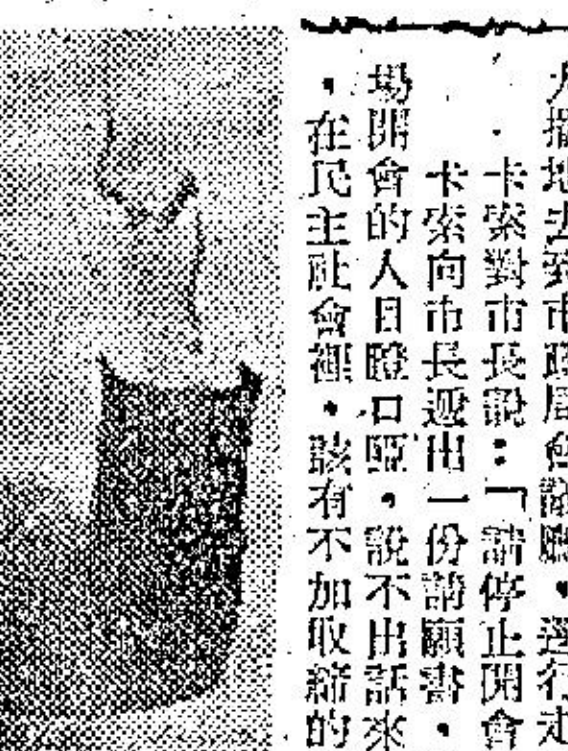 地去到市政局會議廳，逕行走
卡索對市長說：「請停止開會
卡索向市長遞出一份請願書，
場開會的人目瞪口啞，說不出話來
，在民主社會裡，該有不加取締的